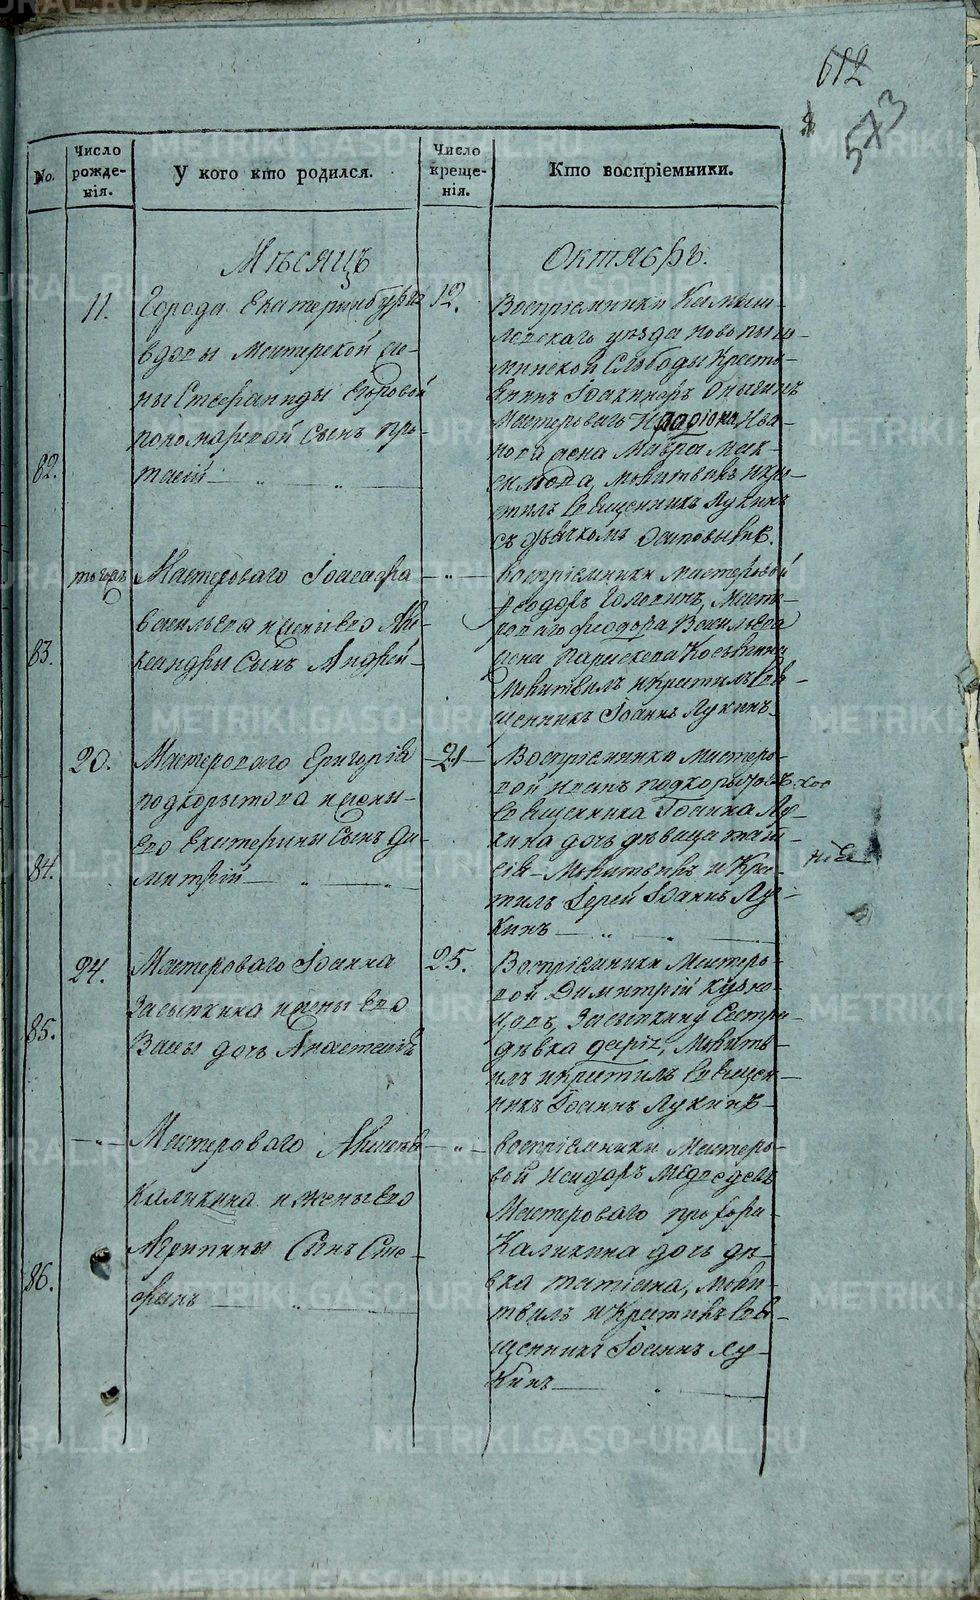 612
573
No.
Число рожде-нія.
У кого кто родился.
Число креще-нія.
Кто воспріемники.
Мѣсяцъ
Октябрь.
82.
11.
Города Екатеринбурга
вдовы Мастерской же-
ны Стефаниды Егоровой
пономаревой Сынъ Про-
тасій
12.
Воспріемники Камыш-
ловскаго уѣзда новопыш-
минской Слободы Кресть-
янинъ Іоакимъ
Мастероваго Иродіона Ива-
нова жена Мавра Мак-
симова, молитвилъ и кре-
стилъ Священникъ Лукинъ
съ дьячкомъ Осиповымъ.
83.
тогожъ
Мастероваго Іоасафа
Васильева и жены его Але-
ксандры Сынъ Андрей
Воспріемники Мастеровой
Феодоръ Голо
роваго Феодора Васильева
жена Параскева
Молитвилъ и крестилъ Свя-
щенникъ Іоаннъ Лукинъ
84.
20.
Мастероваго Григорія
подкорытова и жены
его Екатерины Сынъ Ди-
митрій
21
Воспріемники Мастеро-
вой Иванъ подкорытовъ
Священника Іоанна Лу-
кина дочь дѣвица
Молитвилъ и Кре-
стилъ Іерей Іоаннъ Лу-
кинъ
85.
24.
Мастероваго Іоанна
Засыпкина и жены его
Вассы дочь Анастасія
25.
Воспріемники Мастеро-
вой Димитрій Кузне-
цовъ, Засыпкину Сестра
дѣвка Дарія, Молитв-
илъ и крестилъ Священ-
никъ Іоаннъ Лукинъ
86.
Мастероваго
Каликина и жены его
Агрипины Сынъ Сте-
фанъ
Воспріемники Мастеро-
вой Исидоръ Медведевъ
Мастероваго прохора
Каликина дочь дѣ-
вка татіана, Моли-
твилъ и Крестилъ Свя-
щенникъ Іоаннъ Лу-
кинъ
METRIKI.GASO-URAL.RU